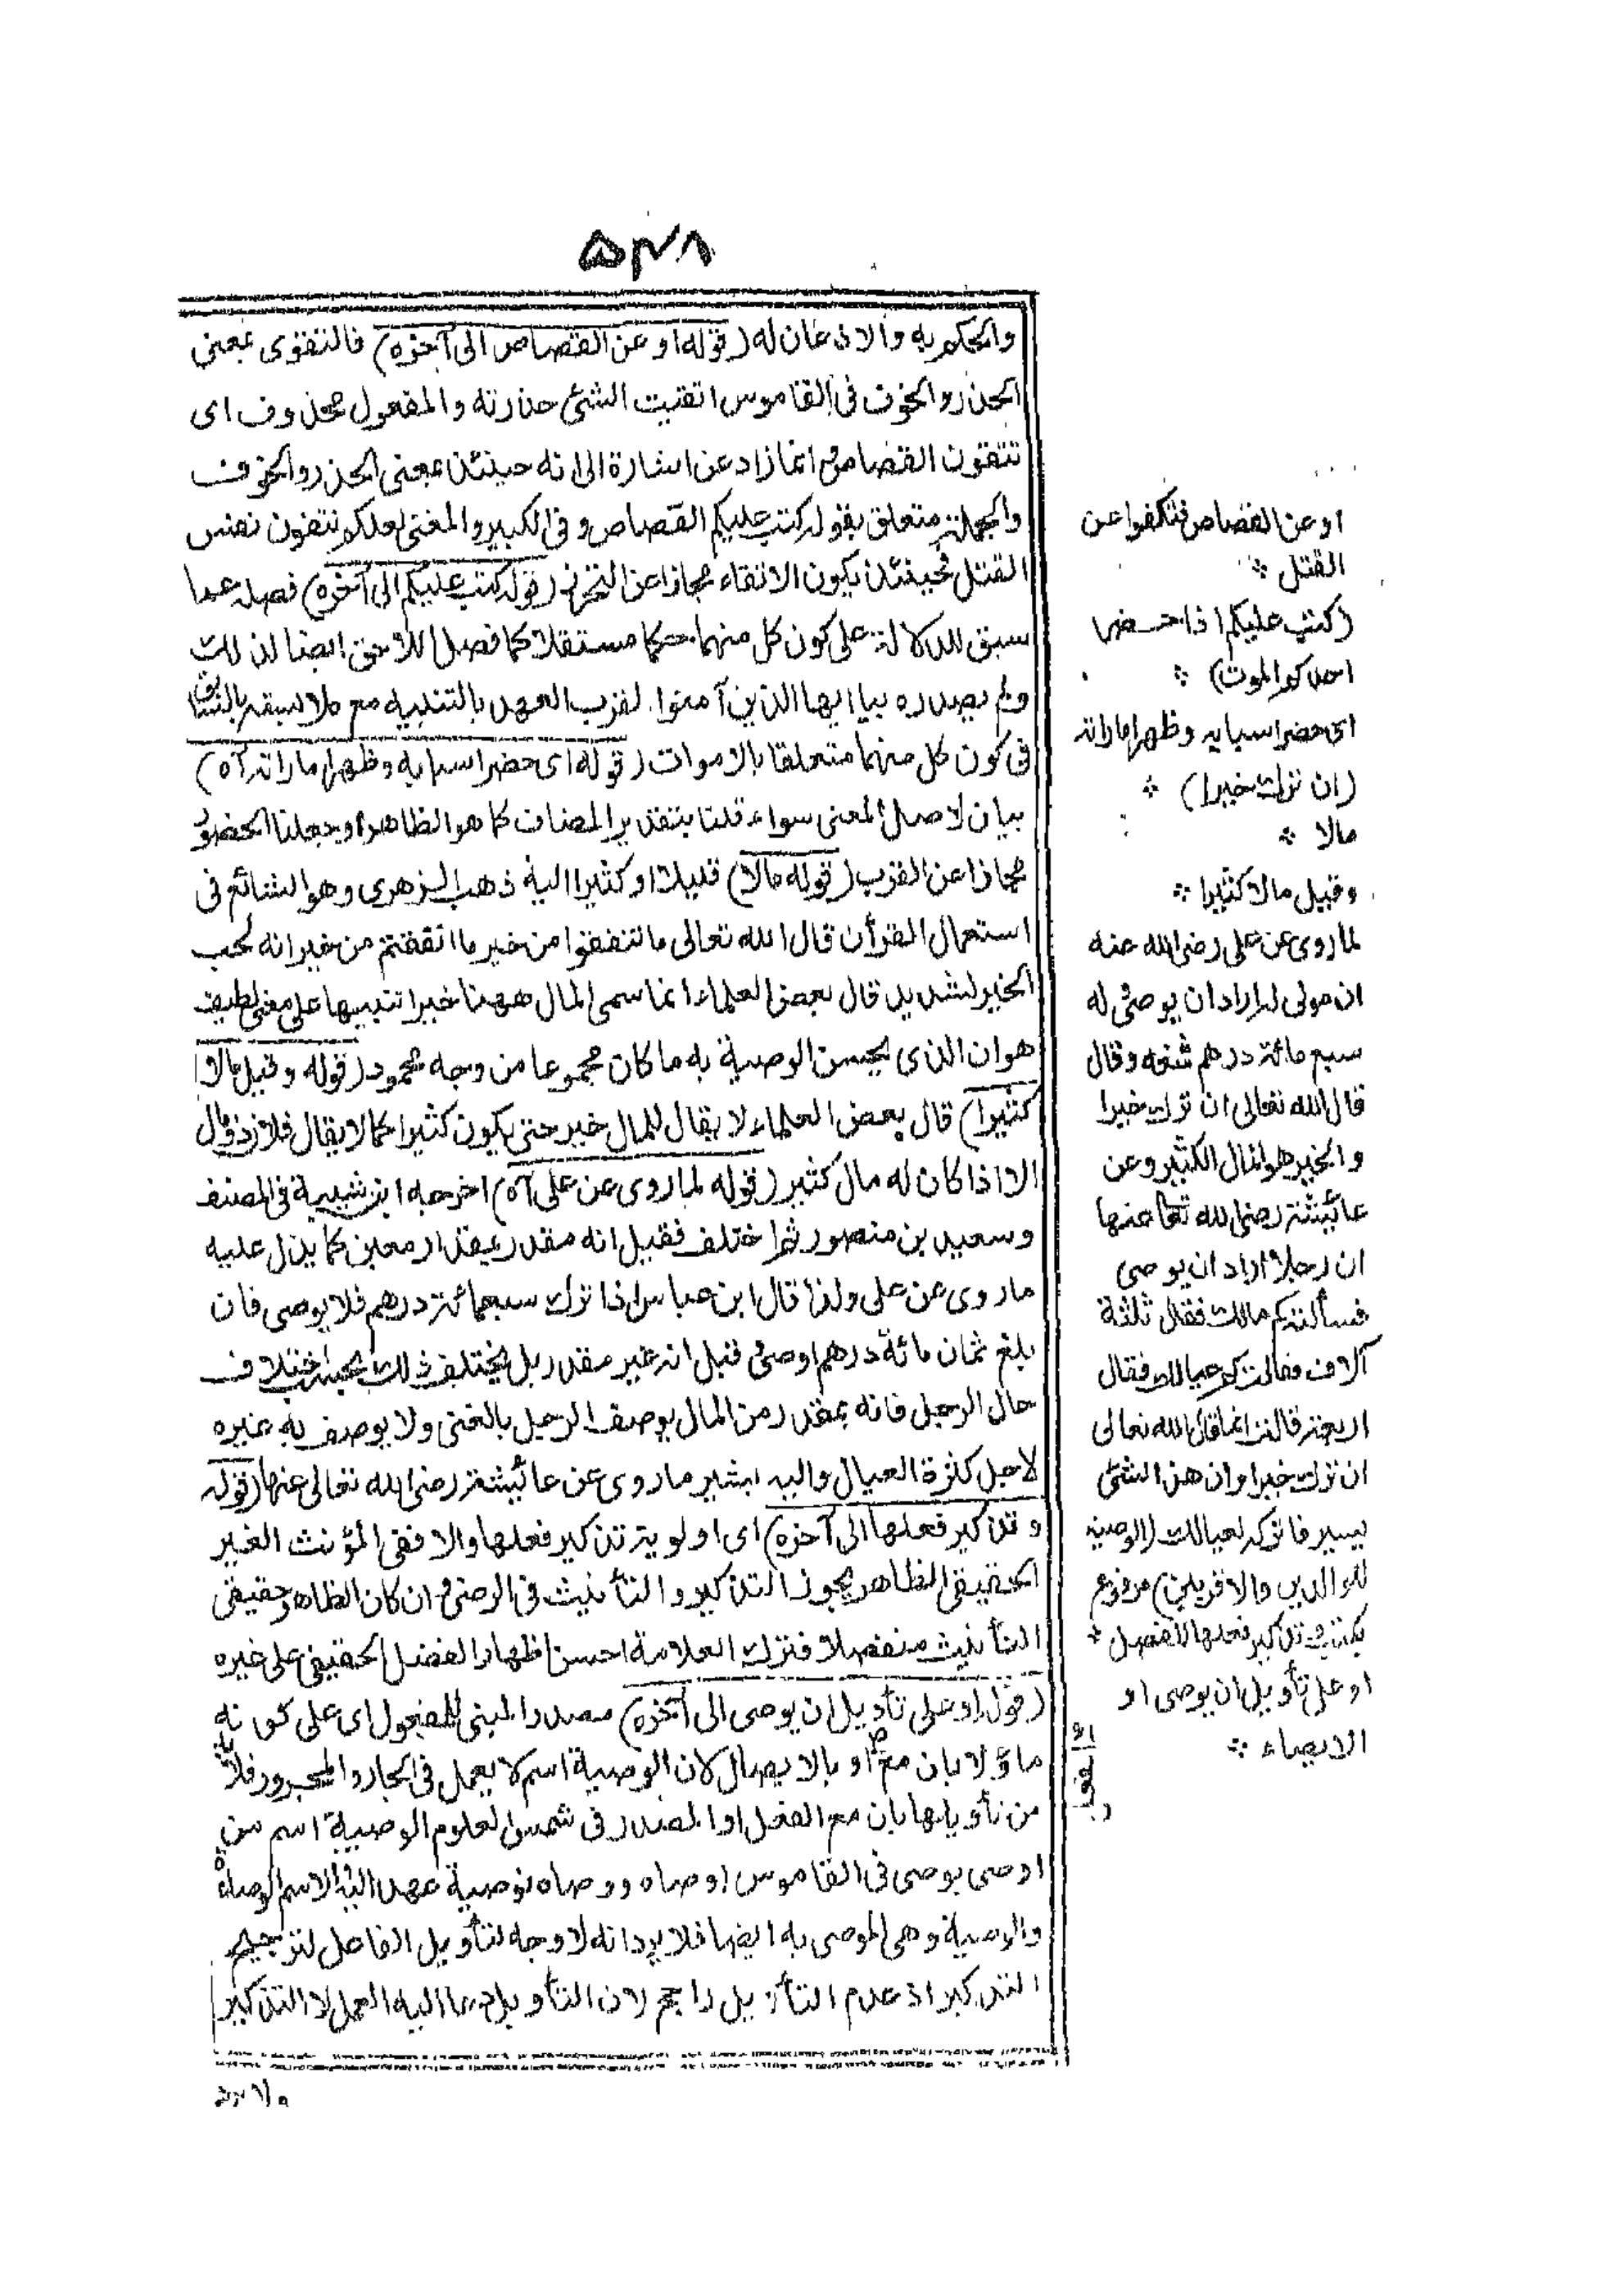 ٥٣٨
والحكم به والاذعان له (قوله او عن القصاص الى آخره) فالتقوى بمعنى
الحذر والخوف فى القاموس اتقيت الشئ حذرته والمفعول محذوف اى
تتقون القصاص وانما زاد عن اشارة الى انه حينئذ بمعنى الحذر والخوف
والجملة متعلق بقوله كتب عليكم القصاص وفى الكبير والمعنى لعلكم تتقون نفس
القتل فحينئذ يكون الاتقاء مجازا عن التحرز (قوله كتب عليكم الى آخره) فصله عما
سبق للدلالة على كون كل منهما حكما مستقلا كما فصل اللاحق ايضا لذلك
ولم يصدره بيا ايها الذين آمنوا لقرب العهد بالتنبيه مع ملابسته بالسابق
فى كون كل منهما متعلقا بالاموات (قوله اى حضر اسبابه وظهر اماراته آه)
بيان لاصل المعنى سواء قلنا بتقدير المضاف كما هو الظاهر او جعلنا الحضور
مجازا عن القرب (قوله مالا) قليلا او كثيرا اليه ذهب الزهرى وهو الشائع فى
استعمال القرأن قال الله تعالى ما تنفقوا من خير ما انفقتم من خير انه لحب
الخير لشديد قال بعض العلماء انما سمى المال ههنا خيرا تنبيها على معنى لطيف
هو ان الذى يحسن الوصية به ما كان مجموعا من وجه محمود (قوله وقيل مالا
كثيرا) قال بعض العلماء لا يقال للمال خير حتى يكون كثيرا كما لا يقال فلان ذو مال
الا اذا كان له مال كثير (قوله لما روى عن على آه) اخرجه ابن شيبة فى المصنف
وسعيد بن منصور ثم اختلف فقيل انه مقدر بمقدار معين كما يدل عليه
ما روى عن على ولذا قال ابن عباس اذا ترك سبعمائة درهم فلا يوصى فان
بلغ ثمان مائة درهم اوصى وقيل انه غير مقدر بل يختلف ذلك بحسب اختلاف
حال الرجل فانه بمقدر من المال يوصف الرجل بالغنى ولا يوصف به غيره
لاجل كثرة العيال واليه يشير ما روى عن عائيشة رضى الله تعالى عنها (قوله
وتذكير فعلها الى آخره) اى اولوية تذكير فعلها والا ففى المؤنث الغير
الحقيقى الظاهر يجوز التذكير والتأنيث فى الرضى وان كان الظاهر حقيقى
التأنيث منفصلا فترك العلامة احسن اظهارا لفضل الحقيقى على غيره
(قوله او على تأويل ان يوصى الى آخره) مصدر المبنى للمفعول اى على كونه
ماؤلا بان مع او بالايصال لان الوصية اسم لا يعمل فى الجار والمجرور فلا بد
من تأويلها بان مع الفعل او المصدر فى شمس العلوم الوصية اسم من
اوصى يوصى فى القاموس اوصاه ووصاه توصية عهد اليه والاسم الوصاة
والوصية وهى الموصى به ايضا فلا يرد انه لا وجه لتأويل الفاعل لترجيح
التذكير اذ عدم التأويل راجح لان التأويل مما اليه العمل لا التذكير
او عن القصاص فتكفوا عن
القتل
(كتب عليكم اذا حضر
احدكم الموت)
اى حضر اسبابه وظهر اماراته
(ان ترك خيرا)
مالا
وقيل مالا كثيرا
لما روى عن على رضى الله عنه
ان مولى له اراد ان يوصى وله
سبع مائة درهم فمنعه وقال
قال الله تعالى ان ترك خيرا
والخير هو المال الكثير وعن
عائيشة رضى الله تعا عنها
ان رجلا اراد ان يوصى
فسألته كم مالك فقال ثلثة
آلاف فقالت كم عيالك فقال
اربعة قالت انما قال الله تعالى
ان ترك خيرا وان هذا لشئ
يسير فاتركه لعيالك (الوصية
للوالدين والاقربين) مرفوع
بكتب وتذكير فعلها للفصل
او على تأويل ان يوصى او
الايصاء